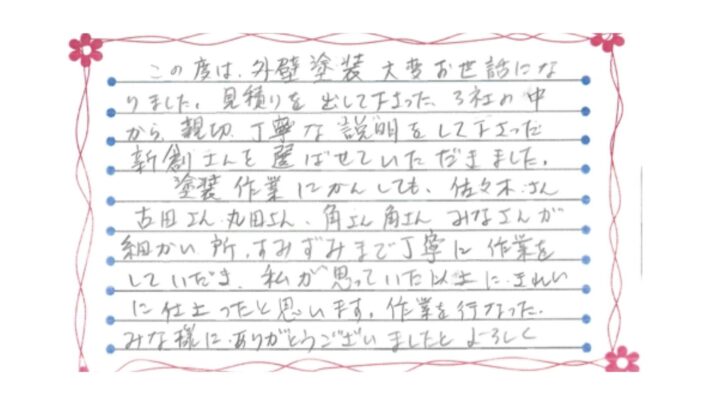 この度は、外壁塗装 大変お世話にな
りました。見積りを出して下さった、3社の中
から、親切、丁寧な説明をして下さった
新創さんを選ばせていただきました。
塗装作業にかんしても、佐々木さん
古田さん、丸田さん、角さん角さん みなさんが
細かい所、すみずみまで丁寧に作業を
していだき、私が思っていた以上に、きれい
に仕上ったと思います。作業を行なった、
みな様に、ありがとうございましたと よろしく